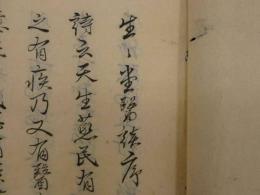 生生堂醫談序
詩云天生蒸民有
之有疾乃又有醫